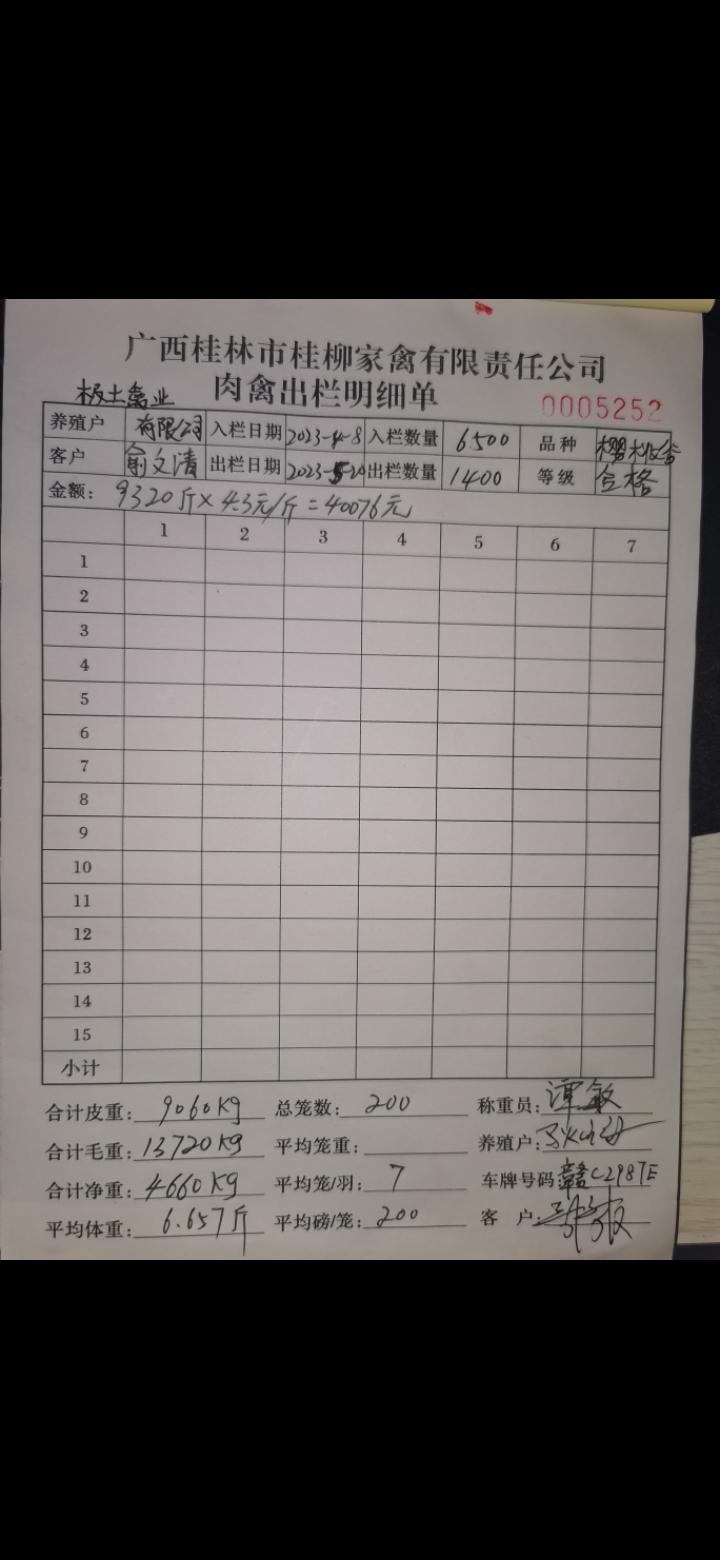 广西桂林市桂柳家禽有限责任公司
肉禽出栏明细单
0005252
板土禽业
养殖户 有限公司 入栏日期 2023-4-8 入栏数量 6500 品种 樱桃谷
客户 俞文清 出栏日期 2023-5-20 出栏数量 1400 等级 合格
金额: 9320斤×4.3元/斤=40076元
1 2 3 4 5 6 7
1
2
3
4
5
6
7
8
9
10
11
12
13
14
15
小计
合计皮重: 9060Kg 总笼数: 200 称重员: 谭敏
合计毛重: 13720Kg 平均笼重: 养殖户:
合计净重: 4660Kg 平均笼/羽: 7 车牌号码 赣C2987E
平均体重: 6.657斤 平均磅/笼: 200 客 户: